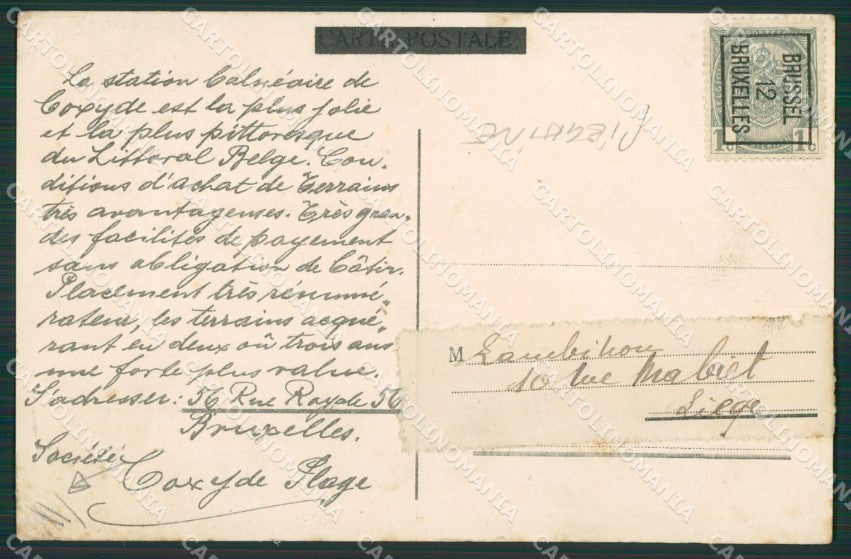 CARTE POSTALE
La station Balnéaire de
Coxyde est la plus jolie
et la plus pittoresque
du Littoral Belge. Con-
ditions d'achat de Terrains
très avantageuses. Très gran-
des facilités de payement
sans obligation de bâtir.
Placement très rénumé-
rateur, les terrains acqué-
rant en deux où trois ans
une forte plus value.
S'adresser: 56 Rue Royale 56
Bruxelles.
Société
Coxyde Plage
BRUSSEL
12
BRUXELLES
1c 1c
M Lambihou
10 rue Mabiet
Liège
CARTOLINOMANIA